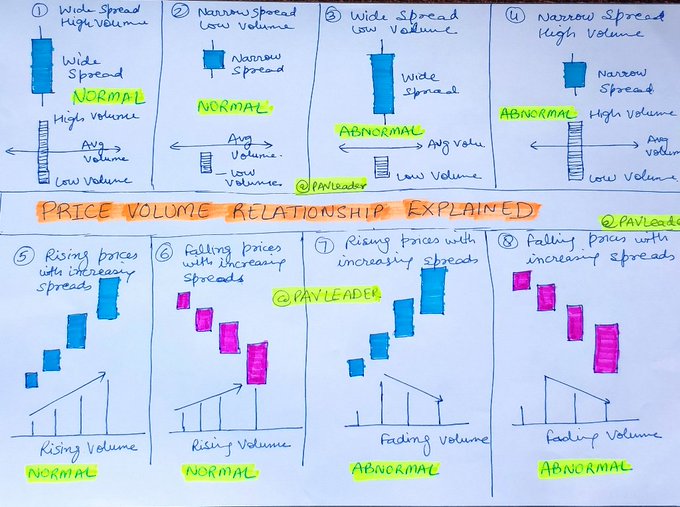 ① Wide Spread
High Volume
Wide
Spread
NORMAL
High Volume
Avg
Volume
Low Volume
② Narrow Spread
Low Volume
Narrow
Spread
NORMAL
Avg
Volume.
Low
Volume.
③ Wide Spread
Low Volume
Wide
Spread
ABNORMAL
Avg Volu
Low Volume
@PAVLeader
④ Narrow Spread
High Volume
Narrow
Spread
ABNORMAL
High Volume
Avg
Volum
Low Volume
PRICE VOLUME RELATIONSHIP EXPLAINED
@PAVLeade
⑤ Rising prices
with increasing
spreads
Rising Volume
NORMAL
⑥ Falling prices
with increasing
spreads
Rising Volume
NORMAL
⑦ Rising prices with
increasing spreads
@PAVLEADER
Fading Volume
ABNORMAL
⑧ Falling prices with
increasing spreads
Fading Volume
ABNORMAL